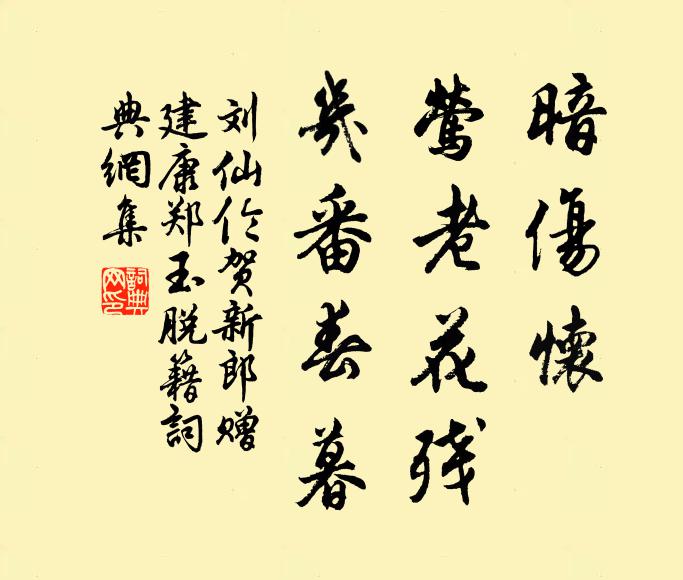 暗傷懷
莺老花残
幾番春暮
刘仙伦贺新郎赠
建康郑玉脱籍詞
典網集
詞典網印